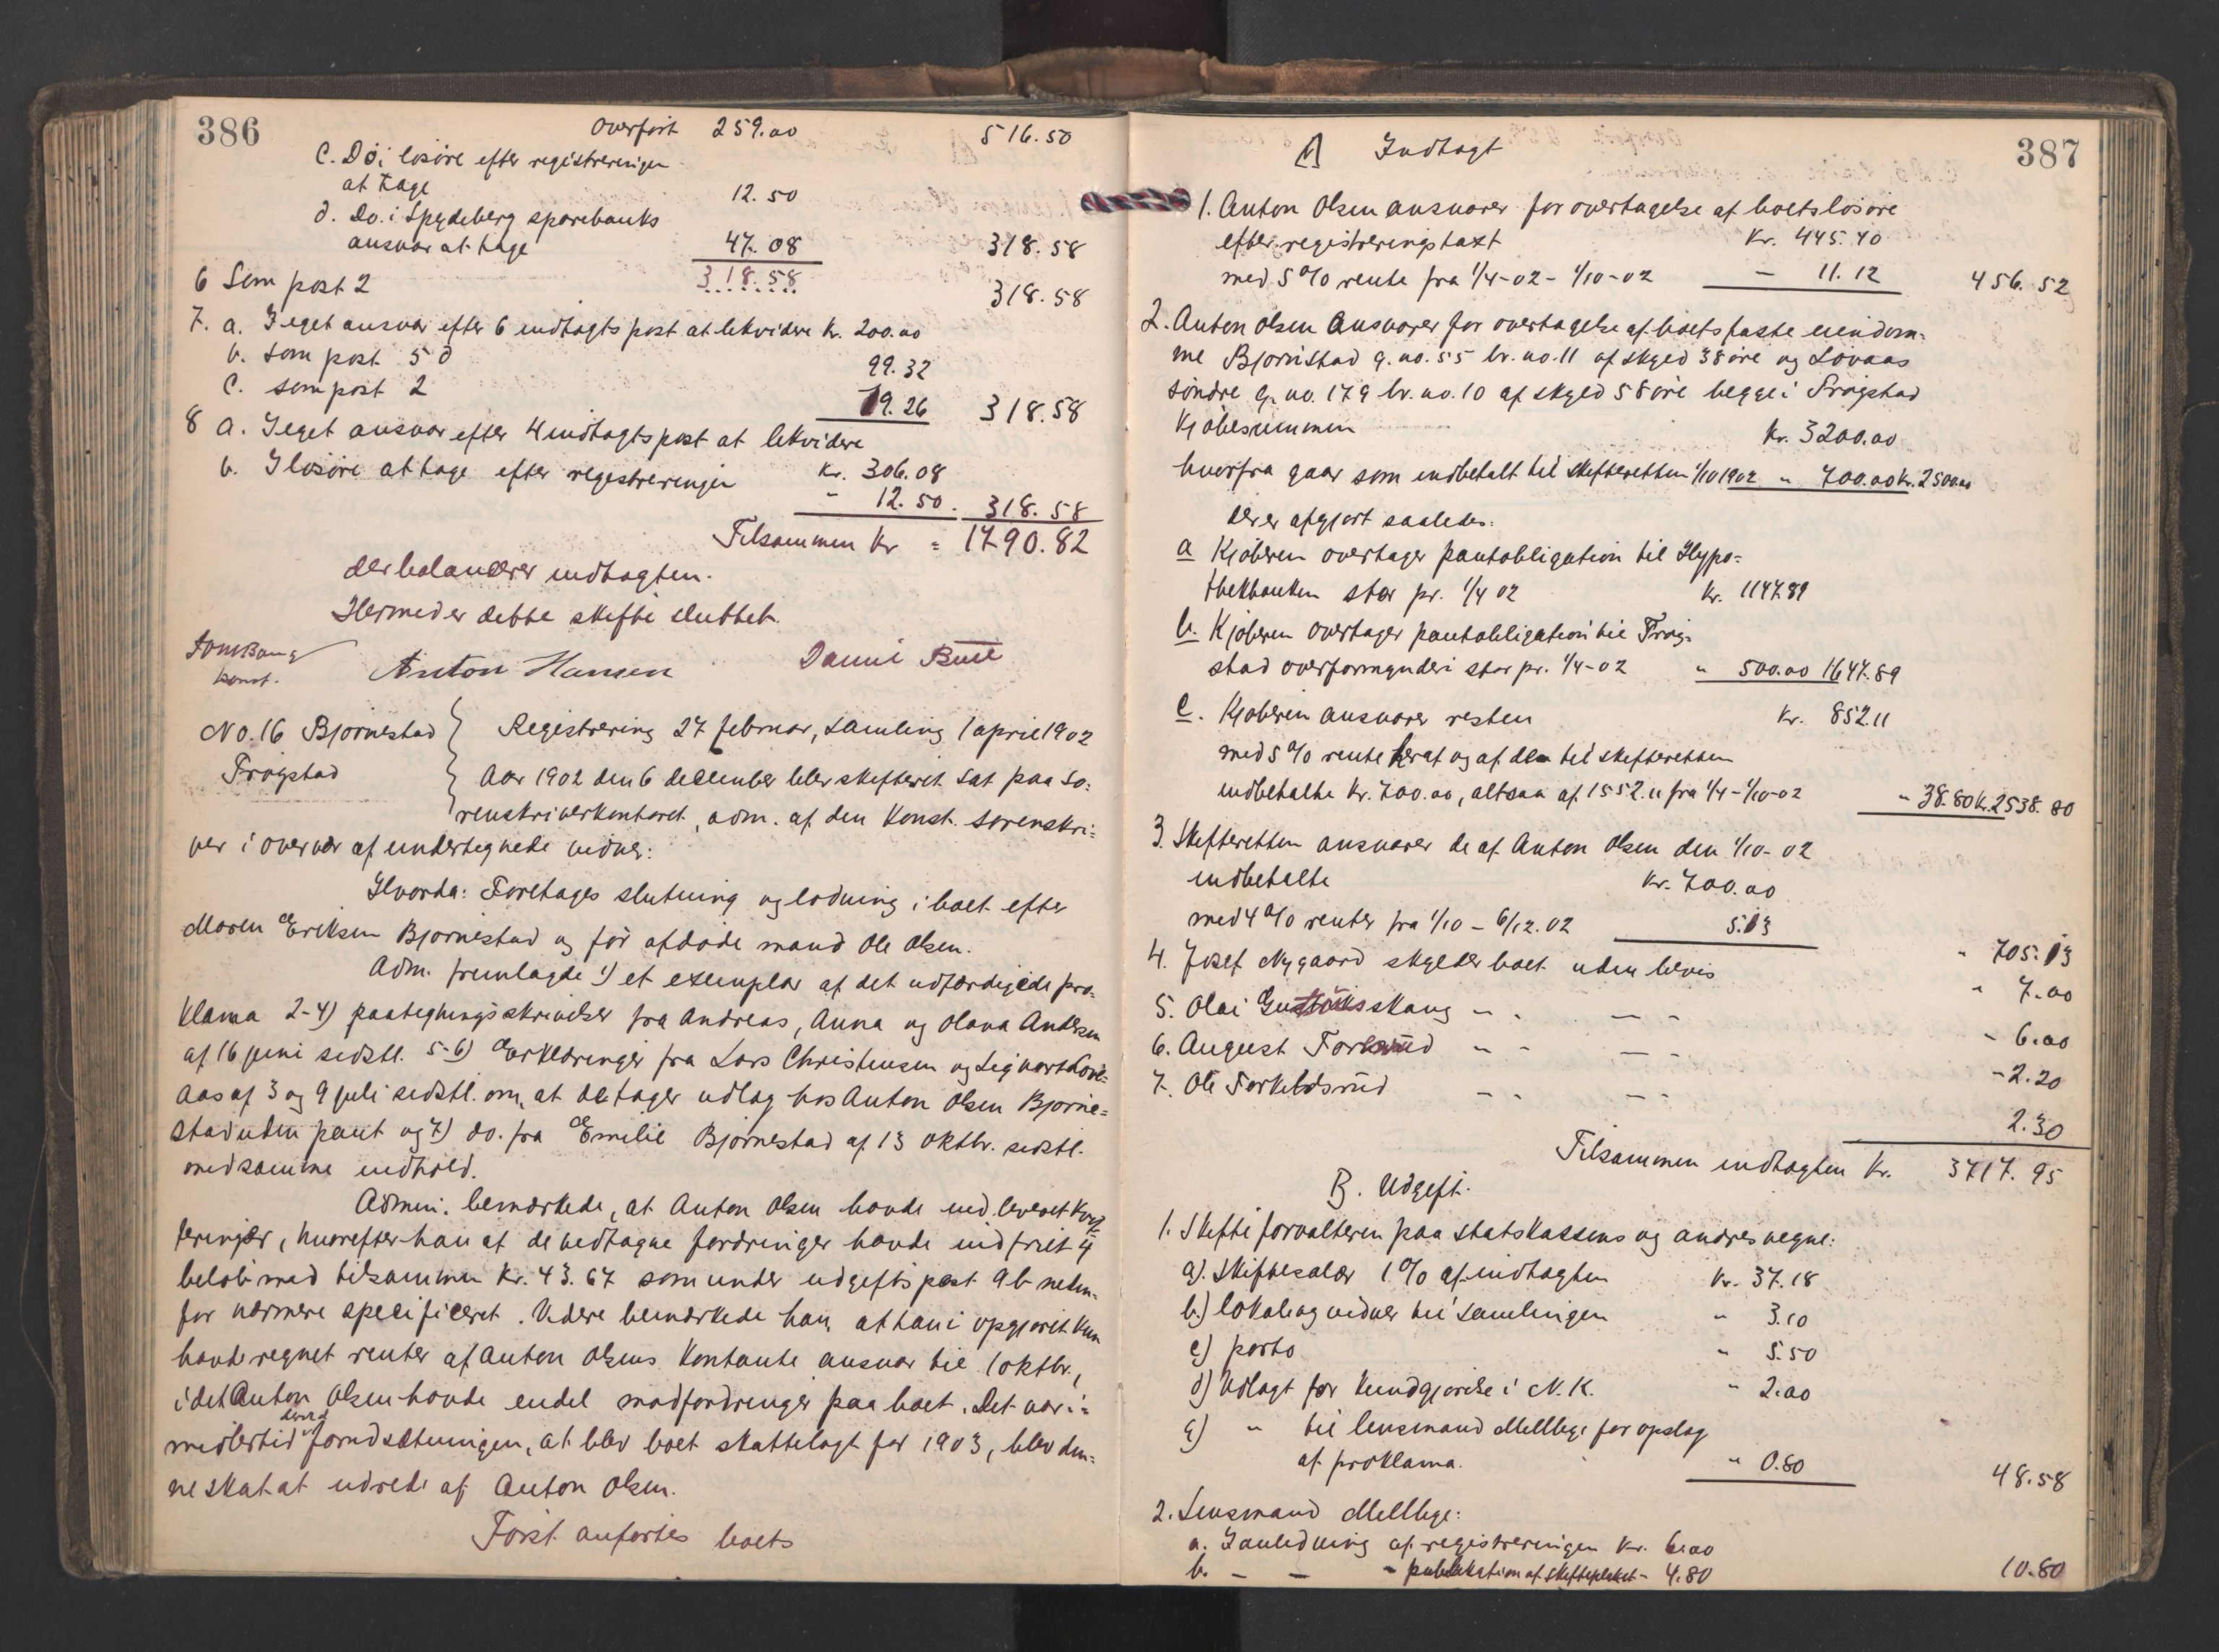 386
Overført 259.00 516.50
C. Do i løsøre efter registreringen
at tage 12.50
d. Do. i Spydeberg sparebanks
ansvar at tage 47.08 318.58
318.58
6 Som post 2 318.58
7. a. I eget ansvar efter 6 indtægts post at likvidere Kr. 200.00
b. som post 5 d 99.32
c. som post 2 19.26 318.58
8 a. I eget ansvar efter 4 indtægtspost at likvidere
Kr. 306.08
b. I løsøre at tage efter registreringen - 12.50. 318.58
Tilsammen Kr = 1790.82
der balancerer indtægten.
Hermed er dette skifte sluttet.
konst. Anton Hansen
No. 16 Bjørnestad Registrering 27 februar, samling 1 april 1902
Frøgstad Aar 1902 den 6 december blev skifteret sat paa so-
renskriverkontoret, adm. af den Konst. sorenskri-
ver i overvær af undertegnede vidner:
Hvorda: Foretages slutning og lodning i boet efter
Maren Eriksen Bjørnestad og før afdøde mand Ole Olsen.
Adm. fremlagde 1) et exemplar af det udfærdigede pro-
klama 2-4) paategningsskrivelser fra Andreas, Anna og Olava Andersen
af 16 juni sidstl. 5-6) Erklæringer fra Lars Christensen og Sigvart Løve-
aas af 3 og 9 juli sidstl. om, at de tager udlæg hos Anton Olsen Bjørne-
stad uden pant og 7) do. fra Emilie Bjørnestad af 13 oktbr. sidstl.
med samme indhold.
Admin. bemærkede, at Anton Olsen havde indleveret kvit-
teringer, hvorefter han af de vedtagne fordringer havde indfriet 4
beløb med tilsammen Kr. 43.67 som under udgifts post 9 b neden-
for nærmere specificeret. Videre bemærkede han, at han i opgjøret kun
havde regnet renter af Anton Olsens kontante ansvar til 1 oktbr.,
idet Anton Olsen havde endel modfordringer paa boet. Det var i-
midlertid derved forudsætningen, at blev boet skattelagt for 1903, blev den-
ne skat at udrede af Anton Olsen.
Først anførtes boets
387
A Indtægt
1. Anton Olsen ansvarer for overtagelse af boets løsøre
efter registreringstaxt Kr. 445.40
med 5% rente fra 1/4-02 - 1/10-02 - 11.12 456.52
2. Anton Olsen ansvarer for overtagelse af boets faste eiendom-
me Bjørnestad g. no. 55 br. no. 11 af skyld 38 øre og Løvaas
søndre g. no. 179 br. no. 10 af skyld 58 øre begge i Frøgstad
Kjøbesummen Kr. 3200.00
hvorfra gaar som indbetalt til skifteretten 1/10 1902 " 700.00 Kr. 2500.00
der er afgjort saaledes:
a Kjøberen overtager pantobligation til Hypo-
thekbanken stor pr. 1/4 02 Kr. 1147.89
b. Kjøberen overtager pantobligation til Frøg-
stad overformynderi stor pr. 1/4-02 " 500.00 1647.89
c. Kjøberen ansvarer resten Kr. 852.11
med 5% rente heraf og af den til skifteretten
indbetalte Kr. 700.00, altsaa af 1552.11 fra 1/4-1/10-02 - 38.80 Kr. 2538.80
3. Skifteretten ansvarer de af Anton Olsen den 1/10-02
indbetalte Kr. 700.00
med 4% renter fra 1/10 - 6/12.02 5.13
" 705.13
4. Josef Nygaard skylder boet uden bevis " 7.00
5. Olai - 6.00
6. August - 2.20
7. Ole Torkildsrud 2.30
Tilsammen indtægten Kr. 3717.95
B. Udgift.
1. Skifteforvalteren paa statskassens og andres vegne:
a). Skiftesalær 1% af indtægten Kr. 37.18
b.) lokale og vidner til samlingen " 3.10
c) porto " 5.50
d) Udlagt for kundgjørelse i N. K. " 2.00
e) " til lensmand Mellbye for opslag
af proklama. " 0.80 48.58
2. Lensmand Mellbye:
a. I anledning af registreringen Kr. 6.00
b. - - - publikation af skifteplakat - 4.80 10.80